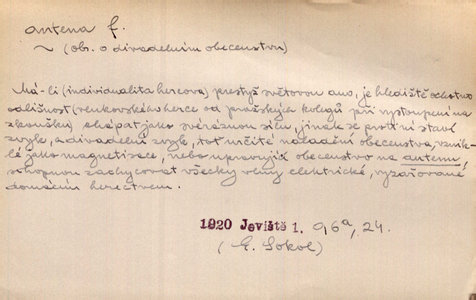 antena f.
~ (ob. o divadelním obecenstvu)
Má-li (individualita hercova) prestyž světovou ano, je hlediště ochotno
odlišnost (venkovského herce od pražských kolegů při vystoupení na
zkoušku) chápat jako svéráznou sílu, jinak se proti ní staví
zvyk, a divadelní zvyk, toť určité naladění obecenstva, vznik-
lé jako magnetisace, nebo upravující obecenstvo na antenu,
schopnou zachycovat všecky vlny elektrické, vyzařované
domácím herectvem.
1920 Jeviště 1. 96a, 24.
(E. Sokol)